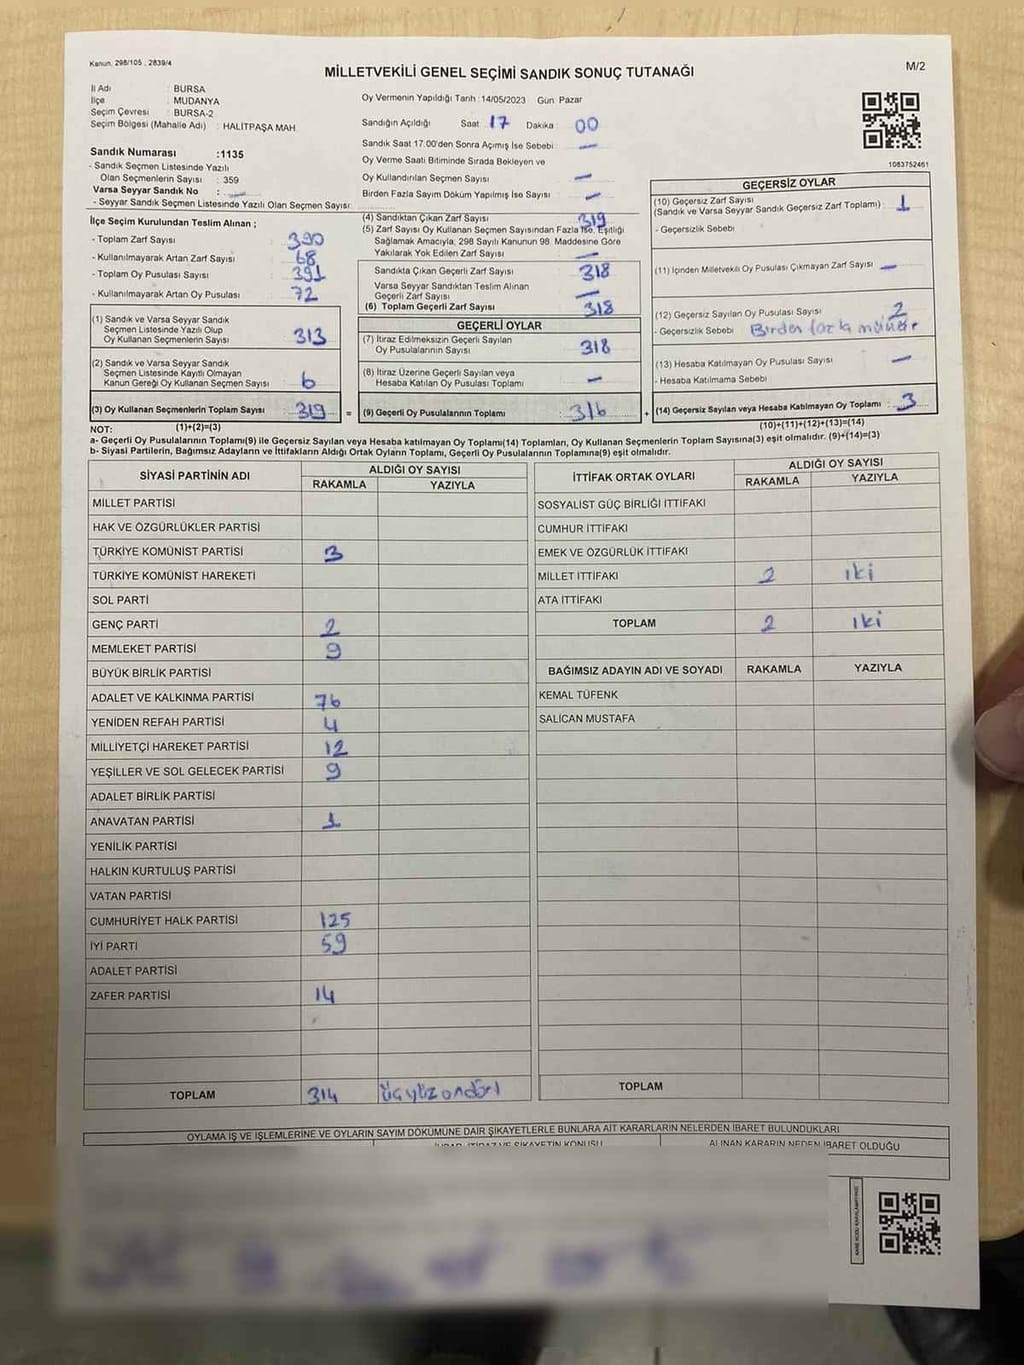 Kanun. 298/105 , 2839/4
M/2
MİLLETVEKİLİ GENEL SEÇİMİ SANDIK SONUÇ TUTANAĞI
İl Adı : BURSA
İlçe : MUDANYA
Seçim Çevresi : BURSA-2
Seçim Bölgesi (Mahalle Adı) : HALİTPAŞA MAH.
Sandık Numarası :1135
- Sandık Seçmen Listesinde Yazılı
Olan Seçmenlerin Sayısı : 359
Varsa Seyyar Sandık No : —
- Seyyar Sandık Seçmen Listesinde Yazılı Olan Seçmen Sayısı:
İlçe Seçim Kurulundan Teslim Alınan ;
- Toplam Zarf Sayısı : 390
- Kullanılmayarak Artan Zarf Sayısı : 68
- Toplam Oy Pusulası Sayısı : 391
- Kullanılmayarak Artan Oy Pusulası : 72
(1) Sandık ve Varsa Seyyar Sandık
Seçmen Listesinde Yazılı Olup
Oy Kullanan Seçmenlerin Sayısı : 313
(2) Sandık ve Varsa Seyyar Sandık
Seçmen Listesinde Kayıtlı Olmayan
Kanun Gereği Oy Kullanan Seçmen Sayısı : 6
(3) Oy Kullanan Seçmenlerin Toplam Sayısı : 319 =
Oy Vermenin Yapıldığı Tarih :14/05/2023 Gün Pazar
Sandığın Açıldığı Saat 17 Dakika 00
Sandık Saat 17:00'den Sonra Açımış İse Sebebi : —
Oy Verme Saati Bitiminde Sırada Bekleyen ve
Oy Kullandırılan Seçmen Sayısı : —
Birden Fazla Sayım Döküm Yapılmış İse Sayısı : —
(4) Sandıktan Çıkan Zarf Sayısı : 319
(5) Zarf Sayısı Oy Kullanan Seçmen Sayısından Fazla İse, Eşitliği
Sağlamak Amacıyla, 298 Sayılı Kanunun 98. Maddesine Göre
Yakılarak Yok Edilen Zarf Sayısı : —
Sandıkta Çıkan Geçerli Zarf Sayısı : 318
Varsa Seyyar Sandıktan Teslim Alınan
Geçerli Zarf Sayısı : —
(6) Toplam Geçerli Zarf Sayısı : 318
GEÇERLİ OYLAR
(7) İtiraz Edilmeksizin Geçerli Sayılan
Oy Pusulalarının Sayısı : 318
(8) İtiraz Üzerine Geçerli Sayılan veya
Hesaba Katılan Oy Pusulası Toplamı : —
(9) Geçerli Oy Pusulalarının Toplamı : 316 +
1083752461
GEÇERSİZ OYLAR
(10) Geçersiz Zarf Sayısı
(Sandık ve Varsa Seyyar Sandık Geçersiz Zarf Toplamı) : 1
- Geçersizlik Sebebi
(11) İçinden Milletvekili Oy Pusulası Çıkmayan Zarf Sayısı : —
(12) Geçersiz Sayılan Oy Pusulası Sayısı : 2
- Geçersizlik Sebebi Birden fazla mühür
(13) Hesaba Katılmayan Oy Pusulası Sayısı : —
- Hesaba Katılmama Sebebi
(14) Geçersiz Sayılan veya Hesaba Katılmayan Oy Toplamı : 3
NOT: (1)+(2)=(3) (10)+(11)+(12)+(13)=(14)
a- Geçerli Oy Pusulalarının Toplamı(9) ile Geçersiz Sayılan veya Hesaba katılmayan Oy Toplamı(14) Toplamları, Oy Kullanan Seçmenlerin Toplam Sayısına(3) eşit olmalıdır. (9)+(14)=(3)
b- Siyasi Partilerin, Bağımsız Adayların ve İttifakların Aldığı Ortak Oyların Toplamı, Geçerli Oy Pusulalarının Toplamına(9) eşit olmalıdır.
SİYASİ PARTİNİN ADI ALDIĞI OY SAYISI
RAKAMLA YAZIYLA
MİLLET PARTİSİ
HAK VE ÖZGÜRLÜKLER PARTİSİ
TÜRKİYE KOMÜNİST PARTİSİ 3
TÜRKİYE KOMÜNİST HAREKETİ
SOL PARTİ
GENÇ PARTİ 2
MEMLEKET PARTİSİ 9
BÜYÜK BİRLİK PARTİSİ
ADALET VE KALKINMA PARTİSİ 76
YENİDEN REFAH PARTİSİ 4
MİLLİYETÇİ HAREKET PARTİSİ 12
YEŞİLLER VE SOL GELECEK PARTİSİ 9
ADALET BİRLİK PARTİSİ
ANAVATAN PARTİSİ 1
YENİLİK PARTİSİ
HALKIN KURTULUŞ PARTİSİ
VATAN PARTİSİ
CUMHURİYET HALK PARTİSİ 125
İYİ PARTİ 59
ADALET PARTİSİ
ZAFER PARTİSİ 14
TOPLAM 314 üçyüzondört
İTTİFAK ORTAK OYLARI ALDIĞI OY SAYISI
RAKAMLA YAZIYLA
SOSYALİST GÜÇ BİRLİĞİ İTTİFAKI
CUMHUR İTTİFAKI
EMEK VE ÖZGÜRLÜK İTTİFAKI
MİLLET İTTİFAKI 2 iki
ATA İTTİFAKI
TOPLAM 2 iki
BAĞIMSIZ ADAYIN ADI VE SOYADI RAKAMLA YAZIYLA
KEMAL TÜFENK
SALİCAN MUSTAFA
TOPLAM
OYLAMA İŞ VE İŞLEMLERİNE VE OYLARIN SAYIM DÖKÜMÜNE DAİR ŞİKAYETLERLE BUNLARA AİT KARARLARIN NELERDEN İBARET BULUNDUKLARI
İTİRAZ VE ŞİKAYETİN KONUSU ALINAN KARARIN NEDEN İBARET OLDUĞU